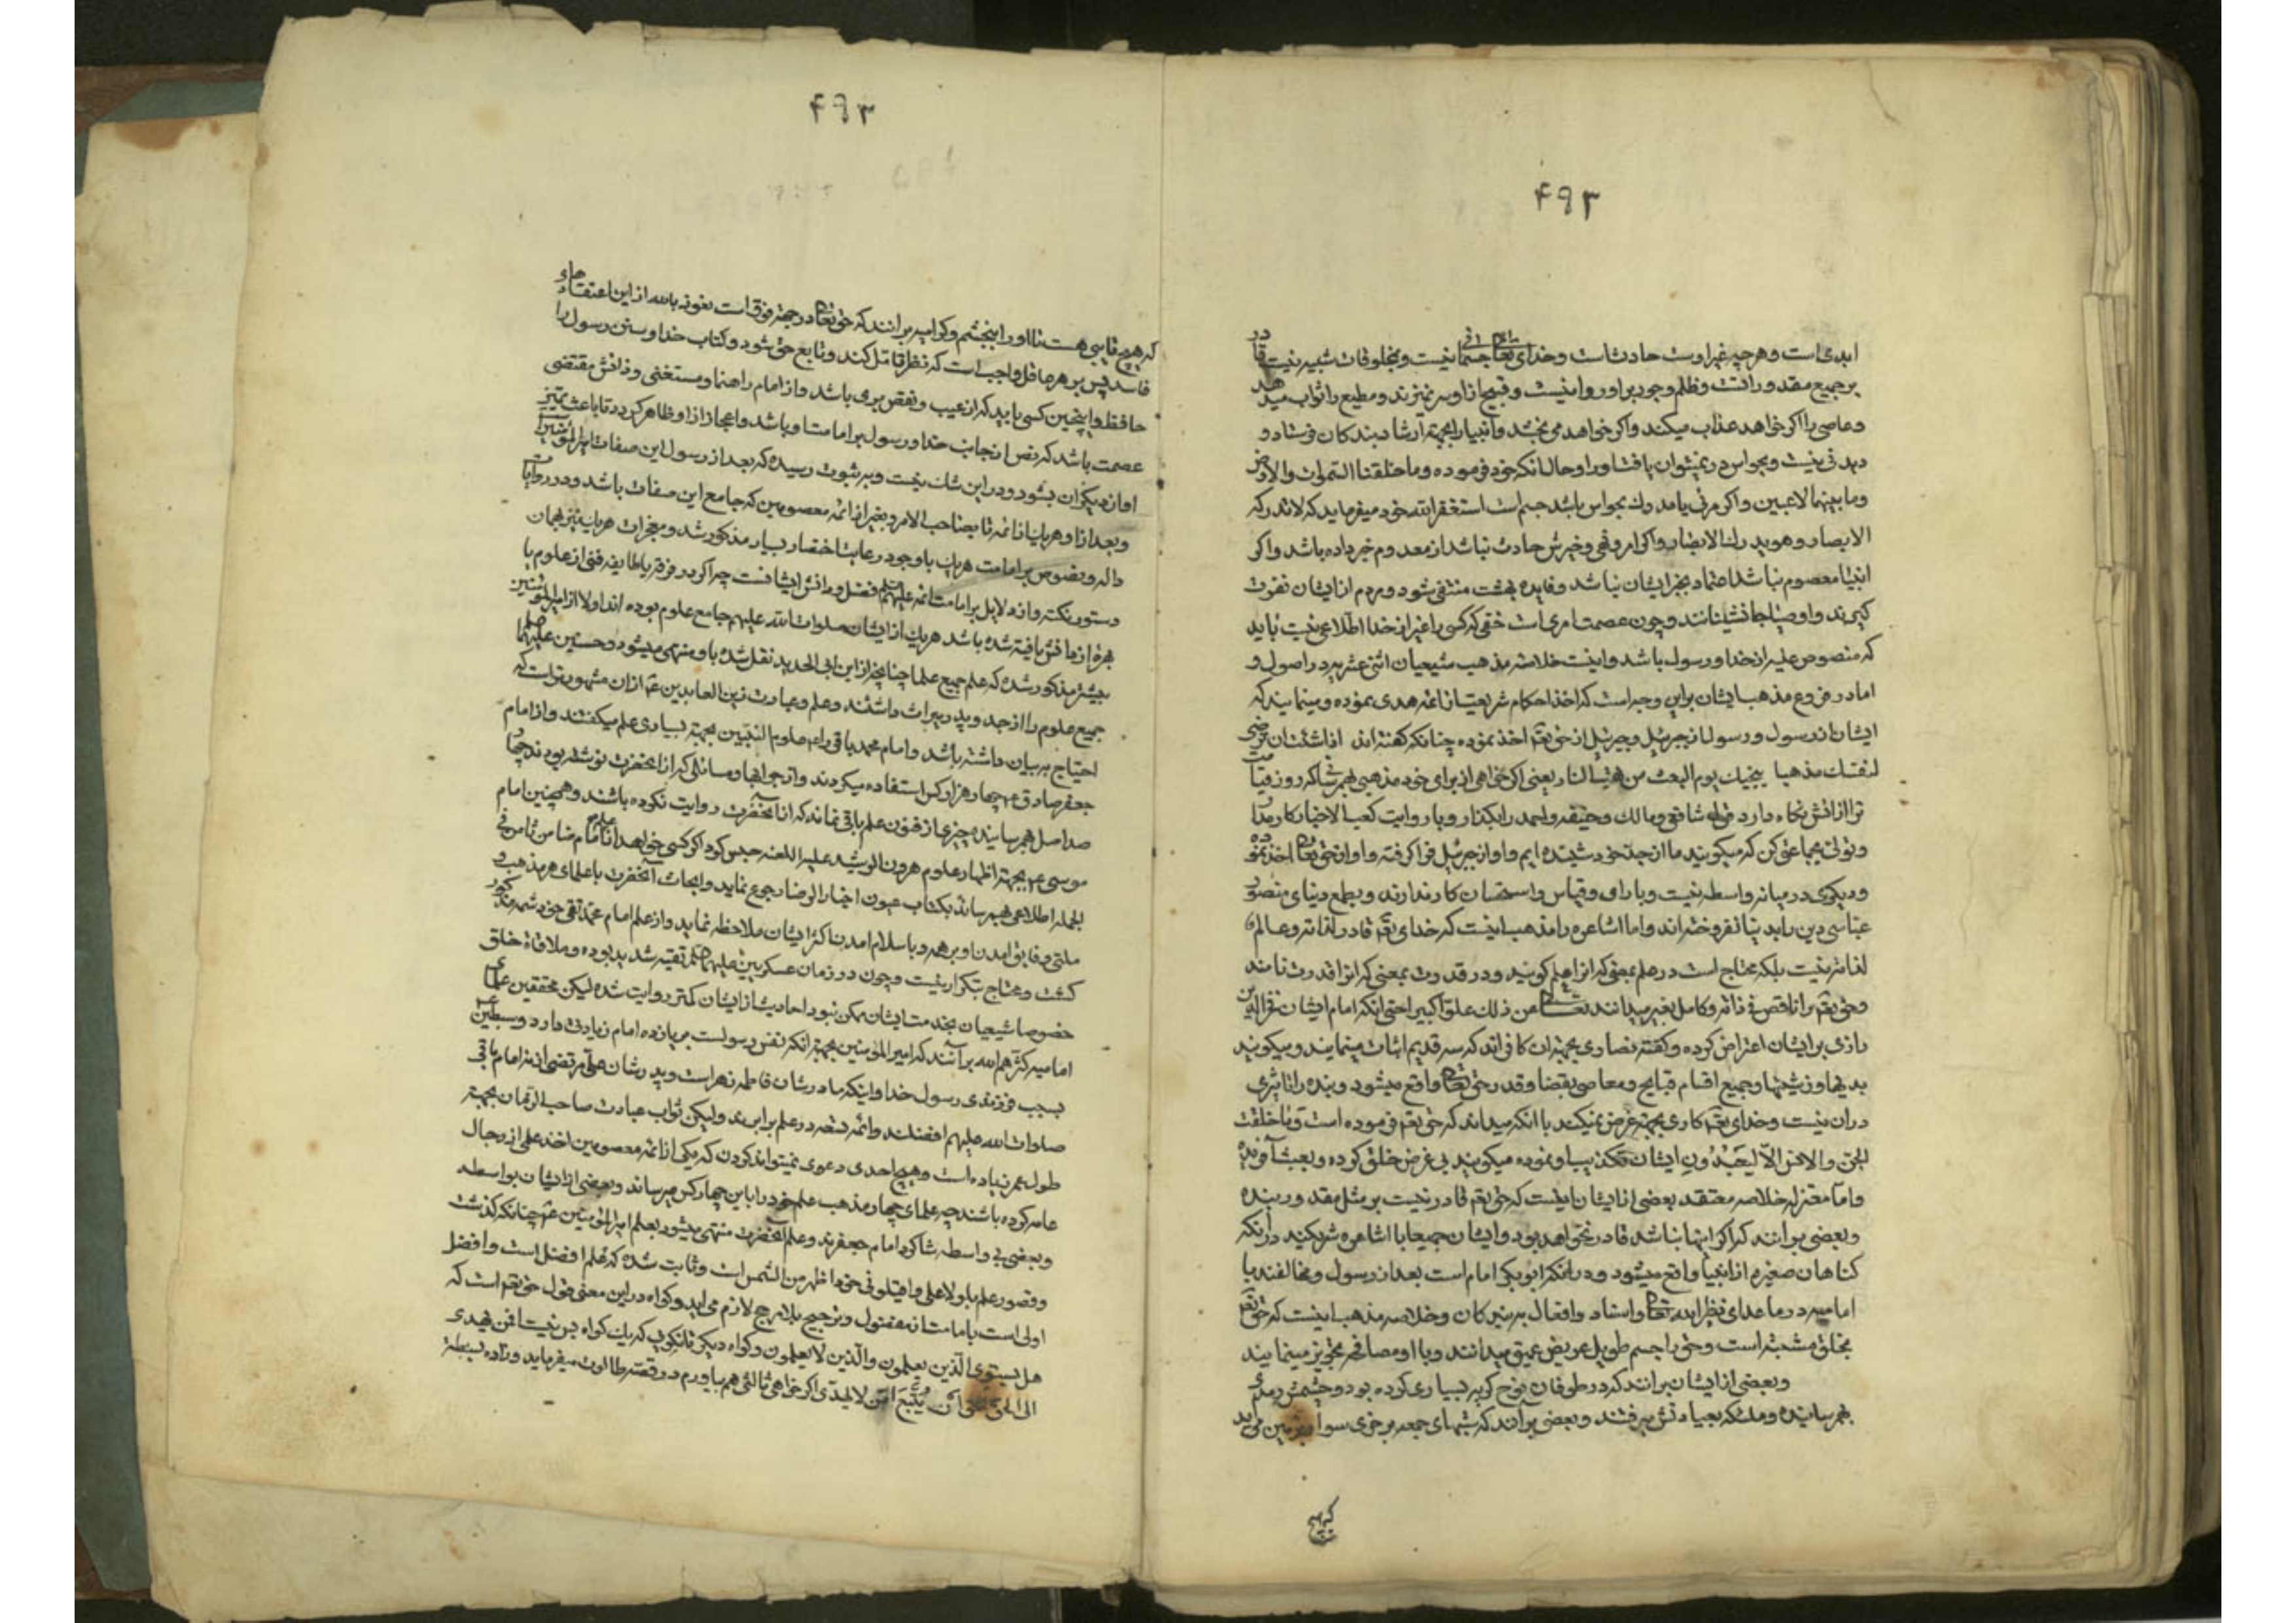 ۴۹۳
ابدی است و هر چه غیر اوست حادث است و خدای تعالی جسمانی نیست و بمخلوقات شبیه نیست قادر
بر جمیع مقدورات و ظلم وجور بر او روا نیست و قبیح از او سر نمیزند و مطیع را ثواب میدهد
و عاصی را اگر خواهد عذاب میکند و اگر خواهد می بخشد و انبیا را بجهة ارشاد بندکان فرستاد و
دیدنی نیست و بحواس در نمیتوان یافت او را و حال انکه خود فرموده و ما خلقنا السموات والارض
وما بینهما لاعبین و اگر مرئی یا مدرک بحواس باشد جسم است استغفر الله خود میفرماید که لا تدرکه
الابصار و هو یدرک الابصار و اگر امر و نهی و خبرش حادث نباشد از معدوم خبر داده باشد و اگر
انبیا معصوم نباشند اعتماد بخبر ایشان نباشد و فایده بعثت منتفی شود و مردم از ایشان نفرت
گیرند و اوصیا جانشینانند و چون عصمت امری است خفی که کسی را غیر از خدا اطلاعی نیست باید
که منصوص علیه از خدا و رسول باشد و اینست خلاصه مذهب شیعیان اثنی عشریه در اصول و
اما در فروع مذهب ایشان بر این وجه است که اخذ احکام شریعت از ائمه هدی نموده و مینمایند که
ایشان از رسول و رسول از جبرئیل و جبرئیل از حق تعم اخذ نموده چنانکه گفته اند اذا شئت ان ترضی
لنفسک مذهبا ینجیک یوم البعث من النار یعنی اگر خواهی از برای خود مذهبی بهم رسانی که روز قیامت
ترا از اتش نکاه دارد قول شافعی و مالک و حنیفه و احمد را بکذار و با روایت کعب الاحبار کار مدار
و تولی بجماعتی کن که میکویند ما از جد خود شنیده ایم و او از جبرئیل فرا کرفته و او از حق تعالی اخذ نموده
و دیکری در میانه واسطه نیست و با رای و قیاس و استحسان کار ندارند و بطمع دنیای منصور
عباسی دین را بدنیا نفروخته اند و اما اشاعره را مذهب اینست که خدای تعم قادر لذاته و عالم
لذاته نیست بلکه محتاج است در علم بمعنی که انرا علم کویند و در قدرت بمعنی که انرا قدرت نامند
و حق تعم را ناقص فی ذاته و کامل بغیر میدانند تعالی عن ذلک علوا کبیرا حتی انکه امام ایشان فخر الدین
رازی بر ایشان اعتراض کرده و کفته نصاری بجهة ان کافراند که سه قدیم اثبات مینمایند و میکویند
بدیها و زشتیها و جمیع اقسام قبایح و معاصی بقضا و قدر حق تعالی واقع میشود و بنده را تاثیری
دران نیست و خدای تعم کاری بجهة غرض نمیکند با انکه میداند که حق تعم فرموده است و ما خلقت
الجن والانس الا لیعبدون ایشان تکذیب او نموده میکویند بی غرض خلق کرده و بعبث آفریده
و اما معتزله خلاصه معتقد بعضی از ایشان اینست که حق تعم قادر نیست بر مثل مقدور بنده
و بعضی برانند که اگر اینها نباشد قادر نخواهد بود و ایشان جمیعا با اشاعره شریکند در آنکه
کناهان صغیره از انبیا واقع میشود و در انکه ابوبکر امام است بعد از رسول و مخالفند با
امامیه در ما عدای نظر الیه تعالی و اسناد افعال به بندکان و خلاصه مذهب اینست که حق تعم
بخلق مشبه است و حق را جسم طویل عریض عمیق میدانند و با او مصافحه تجویز مینمایند
و بعضی از ایشان برانند که در طوفان نوح کریه بسیاری کرده بود و چشمش رمدی
بهم رسانیده و ملئکه بعیادتش میرفتند و بعضی برانند که شبهای جمعه بر خری سوار بزمین می اید
که هیچ
۴۹۴
که هیچ قایی هست تا او را ببخشم و کرامیه برانند که حق تعالی در جهة فوق است نعوذ بالله از این اعتقادهای
فاسد پس بر هر عاقل واجب است که نظر و تامل کند و تابع حق شود و کتاب خدا و سنن رسول را
حافظ و اینچنین کسی باید که از عیب و نقص بری باشد و از امام راهنما و مستغنی و ذاتش مقتضی
عصمت باشد که نص از جانب خدا و رسول بر امامت او باشد و اعجاز از او ظاهر کردد تا باعث تمیز
او از دیکران بشود و در این شک نیست و به ثبوت رسیده که بعد از رسول این صفات با امیرالمؤمنین
و بعد از او هر یک از ائمه تا بصاحب الامر و بغیر از ائمه معصومین که جامع این صفات باشد و در روایات
داله و نصوص بر امامت هر یک با وجود رعایت اختصار بسیار مذکور شد و معجزات هر یک نیز بهمان
دستور نکته و از دلایل بر امامت ائمه علیهم السلم فضل و دانش ایشانست چرا که در هر فرقه یا طایفه فنی از علوم یا
بهره از دانش یافته شده باشد هر یک از ایشان صلوات الله علیهم جامع علوم بوده اند اولا از امیرالمؤمنین
بیشتر مذکور شده که علم جمیع علما چنانچه از ابن ابی الحدید نقل شده باو منتهی میشود و حسنین علیهما السلم
جمیع علوم را از جد و پدر میراث داشتند و علم و عبادت زین العابدین عم از ان مشهورتر است که
احتیاج به بیان داشته باشد و امام محمد باقر را عم علوم النبیین بجهة بسیاری علم میکفتند و از امام
جعفر صادق عم چهار هزار کس استفاده میکردند و از جوابها و مسائلی که از انحضرت نوشته بودند چهار
صد اصل بهم رسانیده چیزی از فنون علم باقی نماند که از آنحضرت روایت نکرده باشند و همچنین امام
موسی عم بجهة اظهار علوم هرون الرشید علیه اللعنه حبس کرد اگر کسی خواهد از علم امام ضامن ثامن فی
الجمله اطلاعی بهم رساند بکتاب عیون اخبار الرضا رجوع نماید و ابحاث آنحضرت با علمای هر مذهب و
ملتی و فایق امدن او بر همه و باسلام امدن اکثر ایشان ملاحظه نماید و از علم امام محمد تقی خود شمه مذکور
کشت و محتاج بتکرار نیست و چون در زمان عسکریین علیهما السلم تقیه شدید بوده و ملاقاة خلق
خصوصا شیعیان بخدمت ایشان ممکن نبود احادیث از ایشان کمتر روایت شده لیکن محققین علمای
امامیه کثرهم الله برآنند که امیرالمؤمنین بجهة انکه نفس رسولست بر یازده امام زیادتی دارد و سبطین
بسبب فرزندی رسول خدا و اینکه مادرشان فاطمه زهراست و پدرشان علی مرتضی از نه امام باقی
صلوات الله علیهم افضلند و ائمه تسعه در علم برابرند ولیکن ثواب عبادت صاحب الزمان بجهة
طول عمر زیاده است و هیچ احدی دعوی نمیتواند کردن که یکی از ائمه معصومین اخذ علمی از رجال
عامه کرده باشند چه علمای چهار مذهب علم خود را باین چهار کس میرساند و بعضی از ایشان بواسطه
و بعضی بی واسطه شاکرد امام جعفرند و علم آنحضرت منتهی میشود بعلم امیرالمؤمنین عم چنانکه کذشت
و قصور علم بلولا علی و اقیلونی خود اظهر من الشمس است و ثابت شده که اعلم افضل است و افضل
اولی است بامامت از مفضول و ترجیح بلا مرجح لازم می اید و کواه در این معنی قول حق تعم است که
هل یستوی الذین یعلمون والذین لا یعلمون و کواه دیکر تا نکویی که یک کواه بس نیست افمن یهدی
الی الحق احق ان یتبع امن لا یهدی اگر خواهی ثالثی هم بیاورم در قصه طالوت میفرماید وزاده بسطة